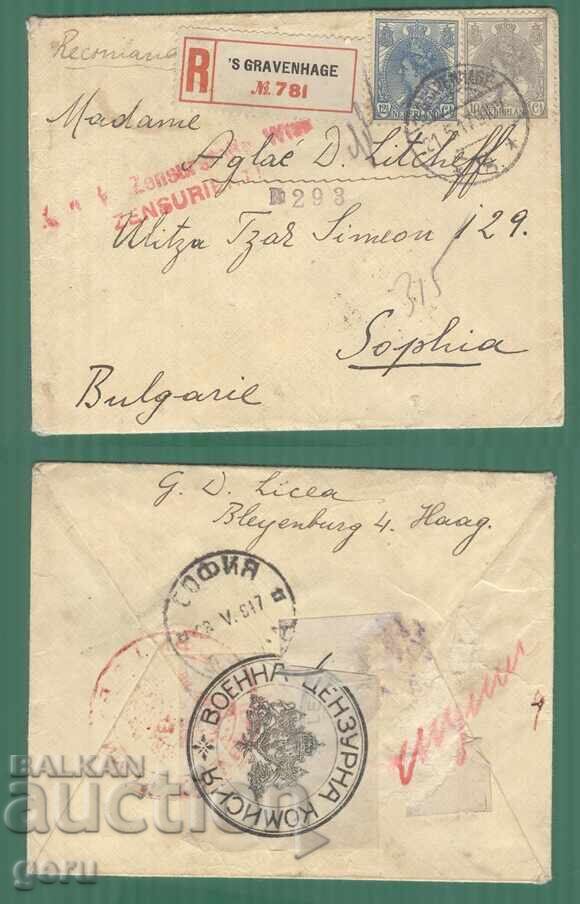 Recomandé
R
'S GRAVENHAGE
№. 781
12½ Ct
NEDERLAND
10 Ct
Madame
Zensurstelle Wien
ZENSURIERT
Aglaé D. Litcheff
293
Ulitza Tzar Simeon 129.
315
Sophia
Bulgarie
G. D. Licea
Bleyenburg 4. Haag.
СОФИЯ
V. 917
ВОЕННА ЦЕНЗУРНА КОМИСИЯ
BALKAN
auction
goru